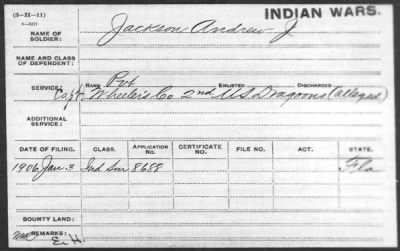 (3-II-11)
INDIAN WARS.
NAME OF SOLDIER: Jackson Andrew J
NAME AND CLASS OF DEPENDENT:
SERVICE: RANK Pvt ENLISTED DISCHARGED
Capt. Wheeler's Co 2nd U.S. Dragoons (alleged)
ADDITIONAL SERVICE:
DATE OF FILING. CLASS. APPLICATION NO. CERTIFICATE NO. FILE NO. ACT. STATE.
1906 Jan. 3 Ind Sur 8688 Fla
BOUNTY LAND:
REMARKS:
E.H.